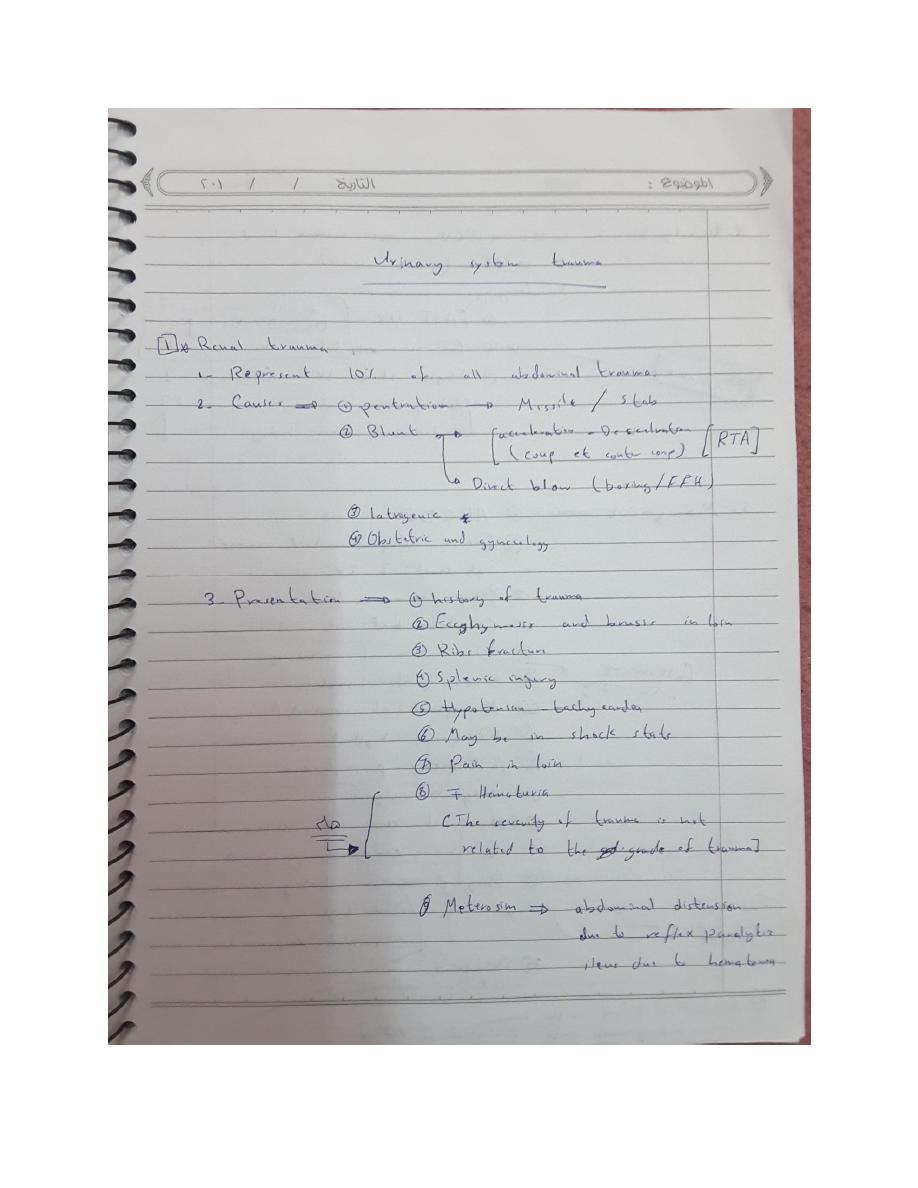 الموضوع : التاريخ / / ٢٠١
Urinary system trauma
1 * Renal trauma
1- Represent 10% of all abdominal trauma.
2- Causes ⇒ ① pentration → Missile / Stab
② Blunt → [acceleration - Deseleration
(coup et contu coup) [RTA]
↳ Direct blow (boxing/FFH)
③ Iatrogenic
④ Obstetric and gynecology
3- Presentation ⇒ ① history of trauma
② Ecchymosis and brusis in loin
③ Ribs fracture
④ Splenic ingury
⑤ Hypotension - tachycardia
⑥ May be in shock state
⑦ Pain in loin
⑧ ∓ Hematuria
هام
[The severity of trauma is not
related to the grade of trauma]
⑨ Meterosim ⇒ abdominal distension
due to reflex paralytic
ileus due to hematoma